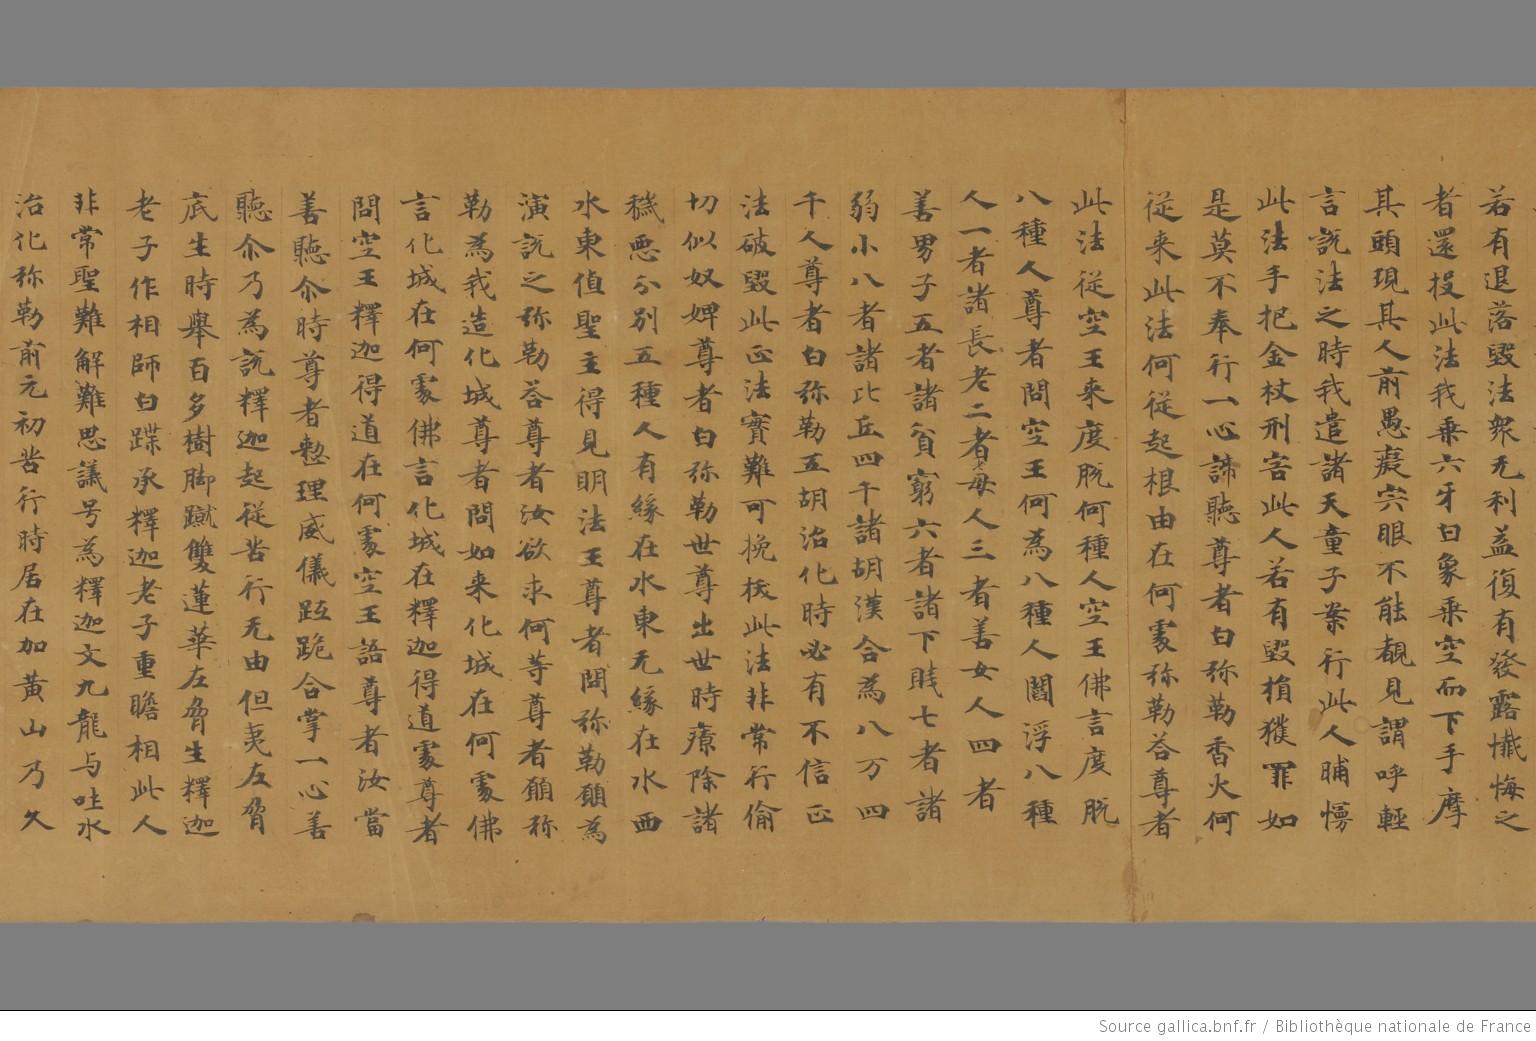 若有退落毀法衆无利益復有發露懺悔之
者還投此法我乗六牙白象乗空而下手摩
其頭現其人前愚癡宍眼不能覩見謂呼輕
言説法之時我遣諸天童子案行此人晡慢
此法手把金杖刑害此人若有毀損獲罪如
是莫不奉行一心諦聽尊者白弥勒香火何
従来此法何従起根由在何處弥勒荅尊者
此法従空王来度脱何種人空王佛言度脱
八種人尊者問空王何為八種人閻浮八種
人一者諸長老二者母人三者善女人四者
善男子五者諸貧窮六者諸下賎七者諸
弱小八者諸比丘四千諸胡漢合為八万四
千人尊者白弥勒五胡治化時必有不信正
法破毀此正法實難可挽拔此法非常行偷
切似奴婢尊者白弥勒世尊出世時療除諸
穢惡分別五種人有緣在水東无緣在水西
水東值聖主得見明法王尊者問弥勒願為
演説之弥勒荅尊者汝欲求何等尊者願弥
勒為我造化城尊者問如来化城在何處佛
言化城在何處佛言化城在釋迦得道處尊者
問空王釋迦得道在何處空王語尊者汝當
善聽尒時尊者整理威儀跙跪合掌一心善
聽尒乃為説釋迦起従苦行无由但夷左脅
底生時舉百多樹脚蹴雙蓮華左脅生釋迦
老子作相師白㲲承釋迦老子重瞻相此人
非常聖難解難思議号為釋迦文九龍与吐水
治化弥勒前元初苦行時居在加黄山乃久
Source gallica.bnf.fr / Bibliothèque nationale de France